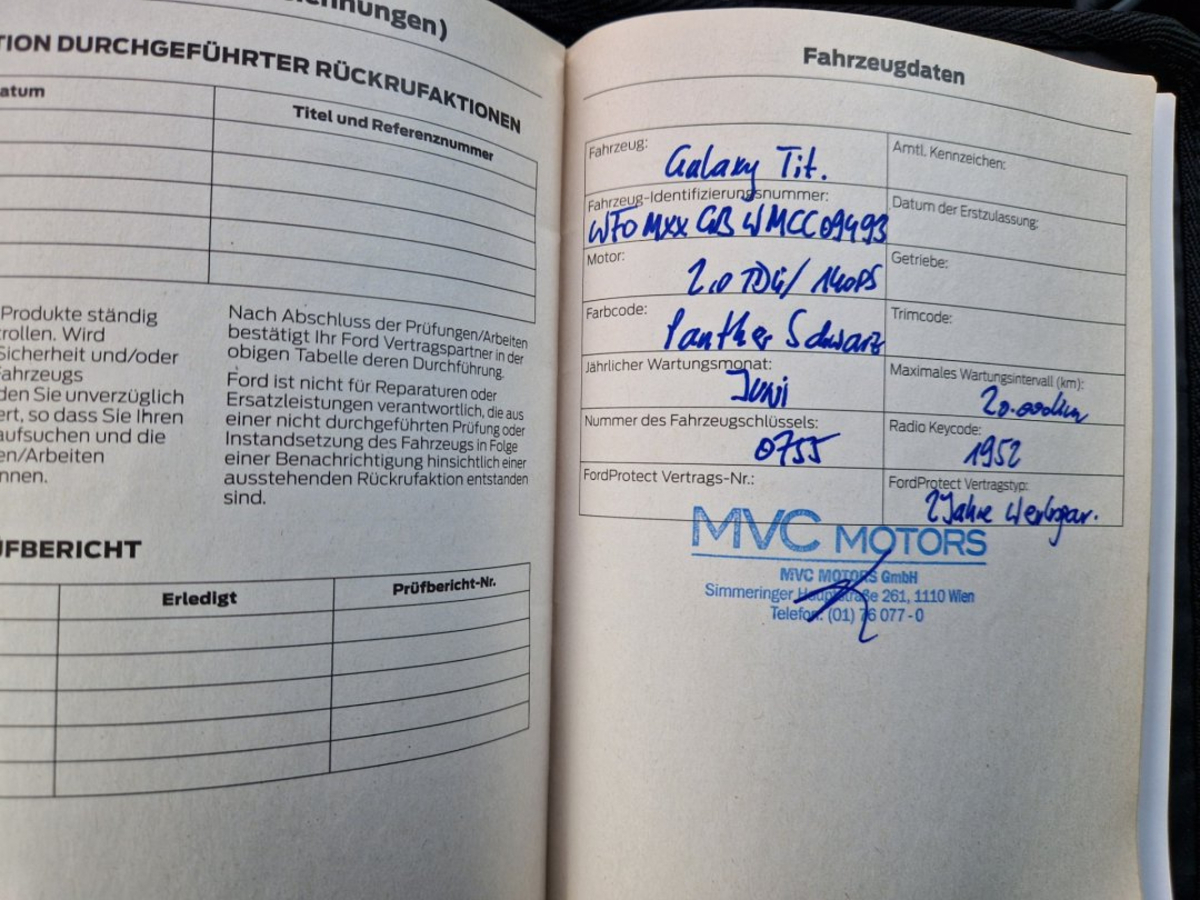 nnungen)
TION DURCHGEFÜHRTER RÜCKRUFAKTIONEN
atum
Titel und Referenznummer
Produkte ständig
trollen. Wird
Sicherheit und/oder
Fahrzeugs
den Sie unverzüglich
ert, so dass Sie Ihren
aufsuchen und die
en/Arbeiten
nnen.
Nach Abschluss der Prüfungen/Arbeiten
bestätigt Ihr Ford Vertragspartner in der
obigen Tabelle deren Durchführung.
Ford ist nicht für Reparaturen oder
Ersatzleistungen verantwortlich, die aus
einer nicht durchgeführten Prüfung oder
Instandsetzung des Fahrzeugs in Folge
einer Benachrichtigung hinsichtlich einer
ausstehenden Rückrufaktion entstanden
sind.
ÜFBERICHT
Erledigt
Prüfbericht-Nr.
Fahrzeugdaten
Fahrzeug: Galaxy Tit.
Amtl. Kennzeichen:
Fahrzeug-Identifizierungsnummer: WF0MXXGBWMCC09493
Datum der Erstzulassung:
Motor: 2,0 TDCi/ 140PS
Getriebe:
Farbcode: Panther Schwarz
Trimcode:
Jährlicher Wartungsmonat: Juni
Maximales Wartungsintervall (km): 20.000km
Nummer des Fahrzeugschlüssels: 0755
Radio Keycode: 1952
FordProtect Vertrags-Nr.:
FordProtect Vertragstyp: 2 Jahre Werksgar.
MVC MOTORS
MVC MOTORS GmbH
Simmeringer Hauptstraße 261, 1110 Wien
Telefon: (01) 76 077-0